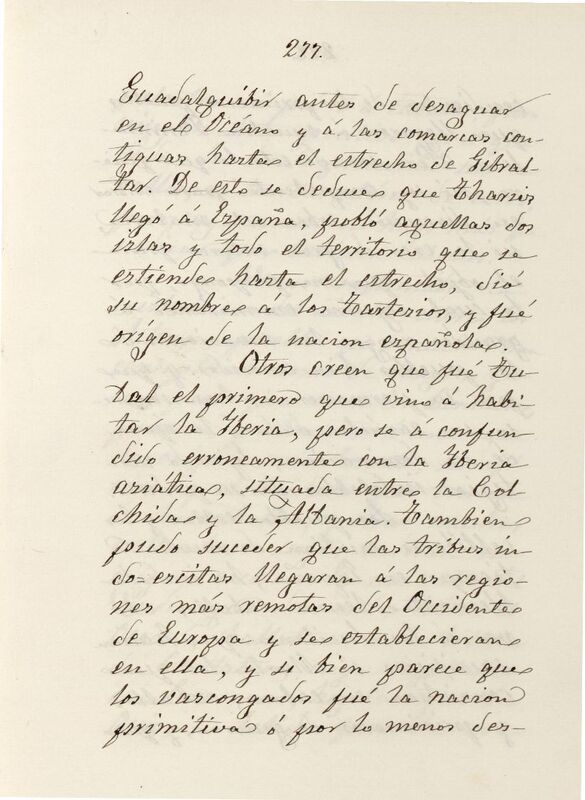 277.
Guadalquibir antes de desaguar
en el Océano y á las comarcas con-
tiguas hasta el estrecho de Gibral-
tar. De esto se deduce que Tharsis
llegó á España, pobló aquellas dos
islas y todo el territorio que se
estiende hasta el estrecho, dió
su nombre á los Tartezios, y fué
orígen de la nacion española.
Otros creen que fué Tu-
bal el primero que vino á habi-
tar la Iberia, pero se á confun
dido erroneamente con la Iberia
asiática, situada entre la Col
chida y la Albania. Tambien
pudo suceder que las tribus in
do=escitas llegaran á las regio-
nes más remotas del Occidente
de Europa y se establecieran
en ella, y si bien parece que
los vascongados fué la nacion
primitiva ó por lo menos des-